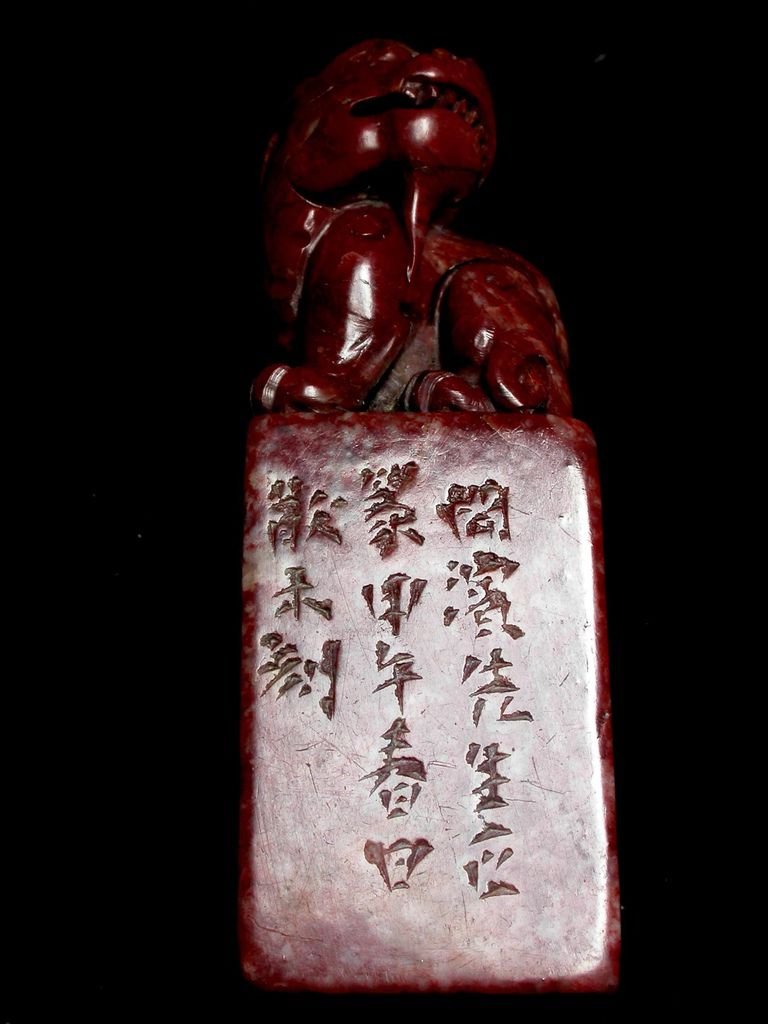 濱先生正
篆甲午春日
散木刻